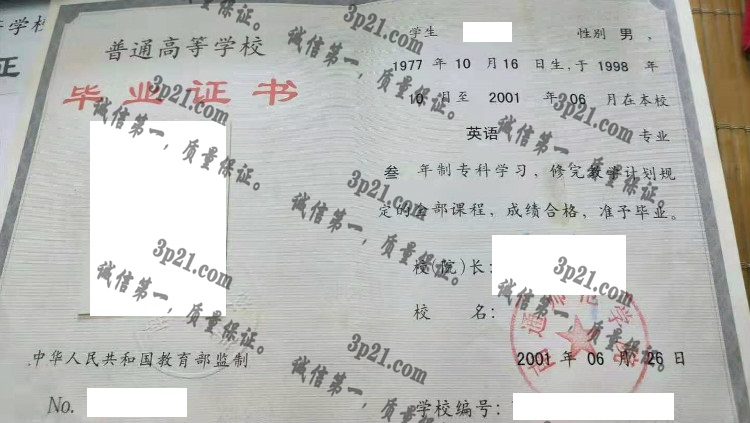 等学校
证
普通高等学校
毕业证书
中华人民共和国教育部监制
No.
学生 性别 男，
1977 年 10 月 16 日生，于 1998 年
10 月至 2001 年 06 月在本校
英语 专业
叁 年制专科学习，修完教学计划规
定的全部课程，成绩合格，准予毕业。
校(院)长：
校 名：
2001 年 06 月 26 日
学校编号：
3p21.com
诚信第一，质量保证。
3p21.com
诚信第一，质量保证。
3p21.com
诚信第一，质量保证。
3p21.com
诚信第一，质量保证。
3p21.com
诚信第一，质量保证。
3p21.com
诚信第一，质量保证。
3p21.com
诚信第一，质量保证。
3p21.com
诚信第一，质量保证。
3p21.com
诚信第一，质量保证。